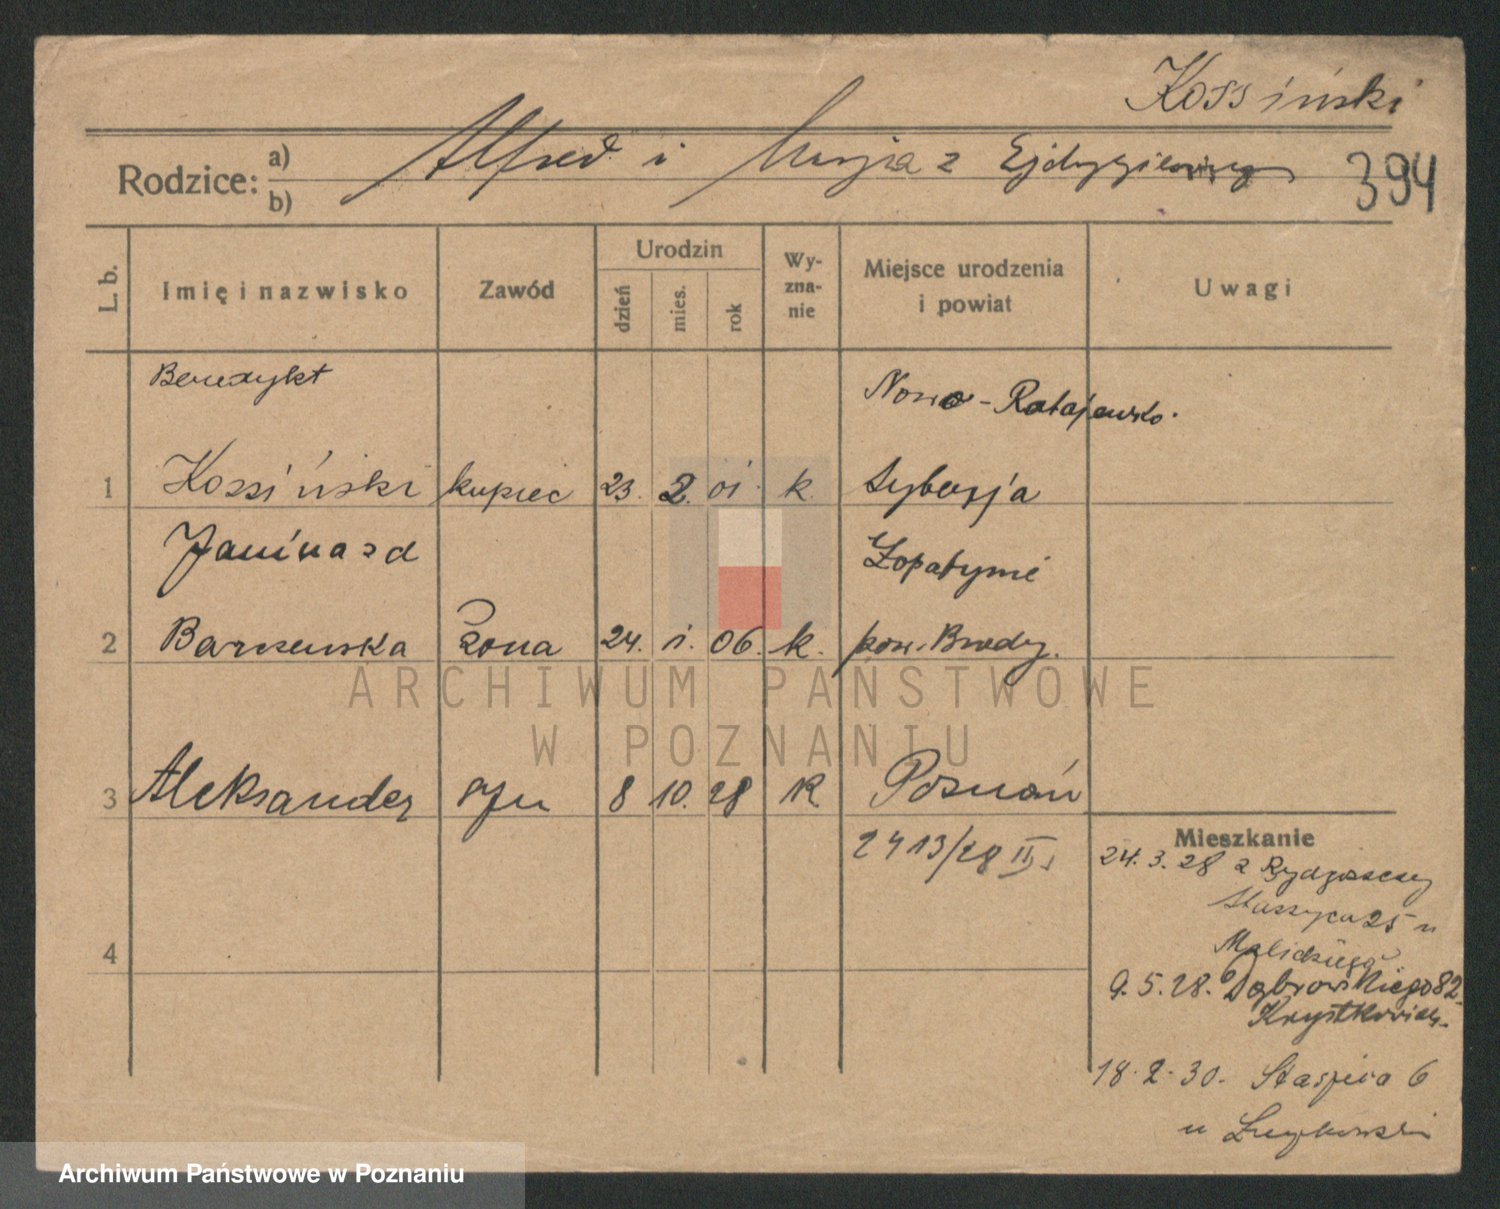 Kossiński
Rodzice: a) b)
Alfred i Marja z
394
L. b.
Imię i nazwisko
Zawód
Urodzin
dzień
mies.
rok
Wy-
zna-
nie
Miejsce urodzenia
i powiat
Uwagi
Benedykt
Nowo-Ratajewsko.
1 Kossiński kupiec 23. 2. 01. k. Syberja
Janina zd
Łopatynie
2 Barszewska żona 24. 1. 06. k. pow. Brody.
3 Aleksander syn 8 10. 28 K. Poznań
2413/28 II
Mieszkanie
24.3.28 z Bydgoszczy
Staszyca 25 u
Malickiego
9.5.28. Dąbrowskiego 82
18.2.30. Staszica 6
u
4
ARCHIWUM PAŃSTWOWE
W POZNANIU
Archiwum Państwowe w Poznaniu